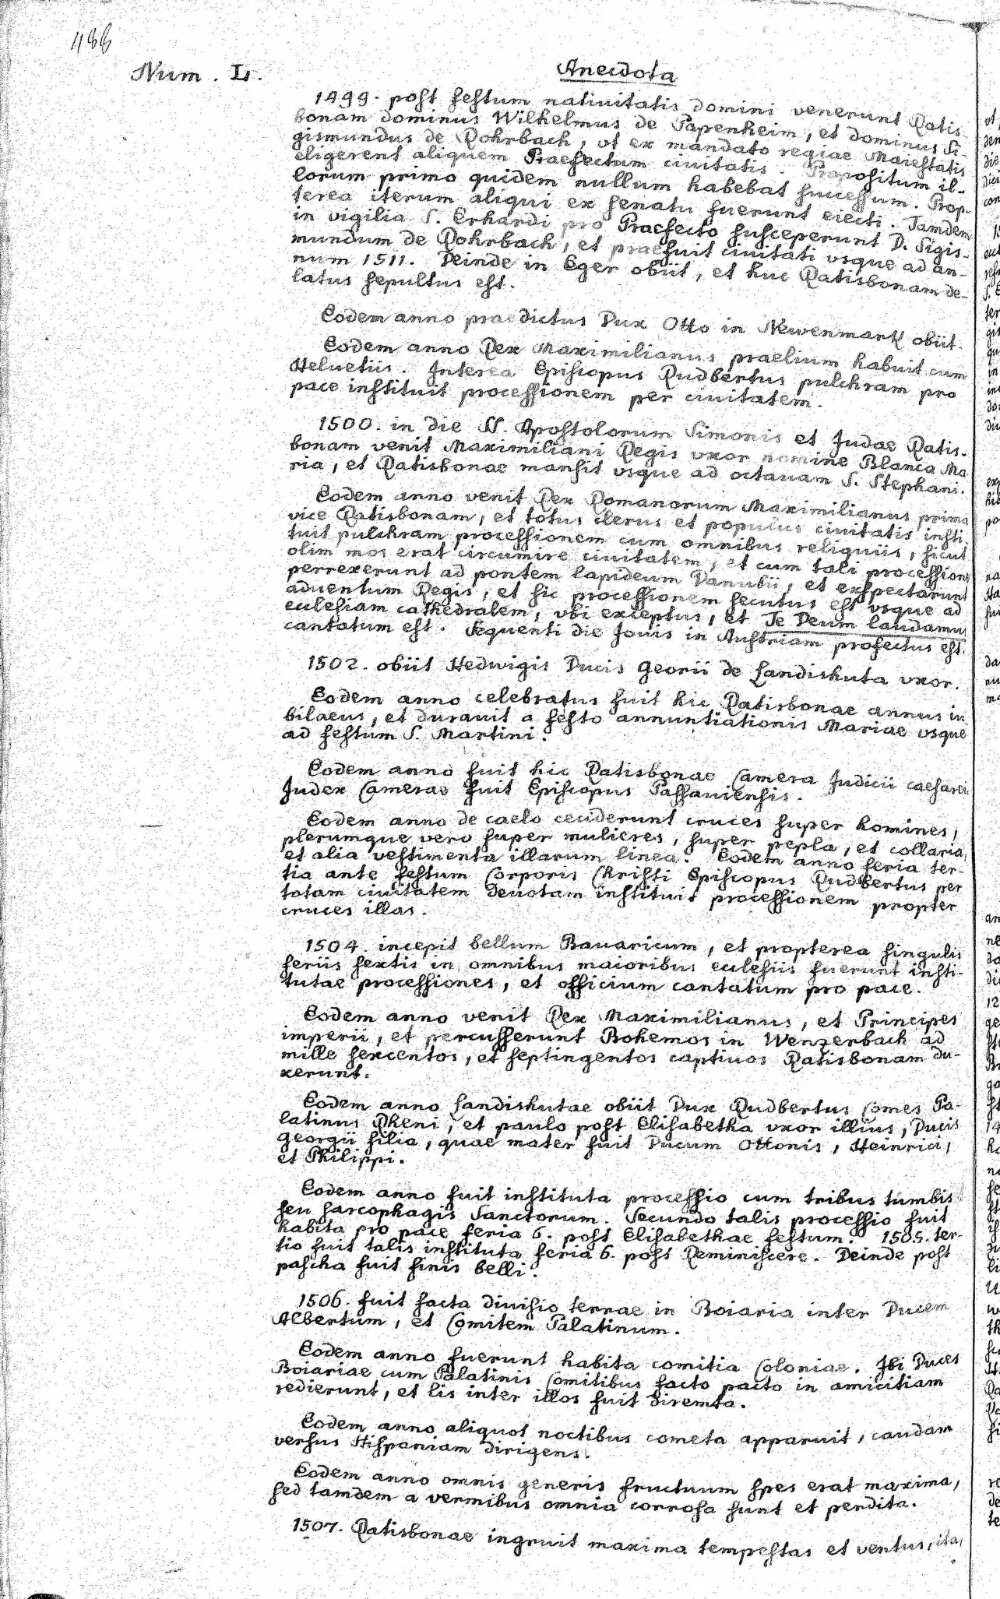 488
Num. L.
Anecdota
1499. post festum nativitatis domini venerunt Ratis-
bonam dominus Wilhelmus de Papenheim, et dominus Si-
gismundus de Rohrbach, vt ex mandato regiae Maiestatis
eligerent aliquem Praefectum civitatis. Propositum il-
lorum primo quidem nullum habebat successum. Prop-
terea iterum aliqui ex senatu fuerunt eiecti. Tamdem
in vigilia S. Erhardi pro Praefecto susceperunt D. Sigis-
mundum de Rohrbach, et praefuit civitati vsque ad an-
num 1511. Deinde in Eger obiit, et huc Ratisbonam de-
latus sepultus est.
Eodem anno praedictus Dux Otto in Newenmark obiit.
Eodem anno Rex Maximilianus praelium habuit cum
Helvetiis. Interea Episcopus Rudbertus pulchram pro
pace instituit processionem per civitatem.
1500. in die SS. Apostolorum Simonis et Judae Ratis-
bonam venit Maximiliani Regis vxor nomine Blanca Ma
ria, et Ratisbonae mansit vsque ad octavam S. Stephani.
Eodem anno venit Rex Romanorum Maximilianus prima
vice Ratisbonam, et totus clerus et populus civitatis insti
tuit pulchram processionem cum omnibus reliquiis, sicut
olim mos erat circumire civitatem, et cum tali procession
perrexerunt ad pontem lapideum Danubii, et exspectarunt
adventum Regis, et sic processionem secutus est vsque ad
ecclesiam cathedralem, vbi exceptus, et Te Deum laudamus
cantatum est. Sequenti die Jovis in Austriam profectus est.
1502. obiit Hedwigis Ducis Georii de Landishuta vxor.
Eodem anno celebratus fuit hic Ratisbonae annus iu
bilaeus, et duravit a festo annuntiationis Mariae vsque
ad festum S. Martini.
Eodem anno fuit hic Ratisbonae Camera Judicii caesarei
Judex Camerae fuit Episcopus Passauiensis.
Eodem anno de caelo ceciderunt cruces super homines,
plerumque vero super mulieres, super pepla, et collaria,
et alia vestimenta illarum linea. Eodem anno feria ter-
tia ante festum Corporis Christi Episcopus Rudbertus per
totam civitatem devotam instituit processionem propter
cruces illas.
1504. incepit bellum Bavaricum, et propterea singulis
feriis sextis in omnibus maioribus ecclesiis fuerunt insti-
tutae processiones, et officium cantatum pro pace.
Eodem anno venit Rex Maximilianus, et Principes
imperii, et percusserunt Bohemos in Wenzerbach ad
mille sexcentos, et septingentos captivos Ratisbonam du-
xerunt.
Eodem anno Landishutae obiit Dux Rudbertus Comes Pa-
latinus Rheni, et paulo post Elisabetha vxor illius, Ducis
Georgii filia, quae mater fuit Ducum Ottonis, Heinrici,
et Philippi.
Eodem anno fuit instituta processio cum tribus tumbis
seu sarcophagis Sanctorum. Secundo talis processio fuit
habita pro pace feria 6. post Elisabethae festum. 1505. ter-
tio fuit talis instituta feria 6. post Reminiscere. Deinde post
pascha fuit finis belli.
1506. fuit facta divisio terrae in Boiaria inter Ducem
Albertum, et Comitem Palatinum.
Eodem anno fuerunt habita comitia Coloniae. Ibi Duces
Boiariae cum Palatinis Comitibus facto pacto in amicitiam
redierunt, et lis inter illos fuit diremta.
Eodem anno aliquot noctibus cometa apparuit, caudam
versus Hispaniam dirigens.
Eodem anno omnis generis fructuum spes erat maxima,
sed tamdem a vermibus omnia corrosa sunt et perdita.
1507. Ratisbonae ingruit maxima tempestas et ventus, ita,